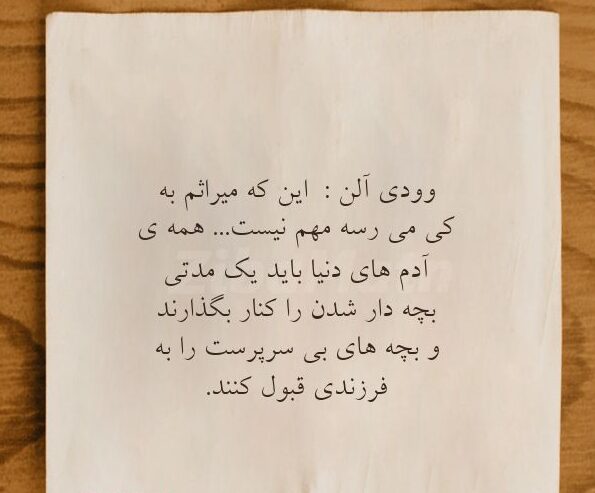 وودی آلن : این که میراثم به
کی می رسه مهم نیست... همه ی
آدم های دنیا باید یک مدتی
بچه دار شدن را کنار بگذارند
و بچه های بی سرپرست را به
فرزندی قبول کنند.